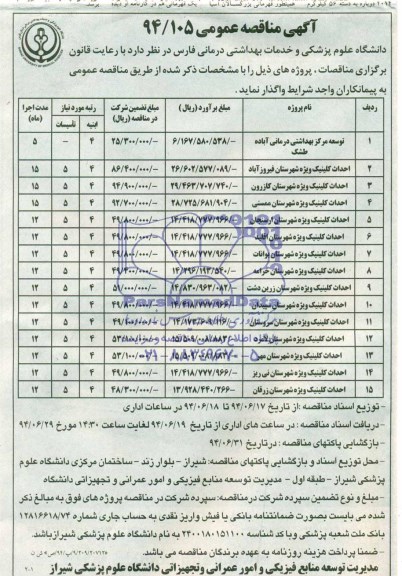 آگهی مناقصه عمومی ۹۴/۱۰۵
دانشگاه علوم پزشکی و خدمات بهداشتی درمانی فارس در نظر دارد با رعایت قانون
برگزاری مناقصات ، پروژه های ذیل را با مشخصات ذکر شده از طریق مناقصه عمومی
به پیمانکاران واجد شرایط واگذار نماید.
ردیف نام پروژه مبلغ برآورد (ریال) مبلغ تضمین شرکت در مناقصه (ریال) رتبه مورد نیاز ابنیه تأسیسات مدت اجرا (ماه)
۱ توسعه مرکز بهداشتی درمانی آباده طشک ۶/۱۶۷/۵۸۰/۵۳۸/- ۲۵/۳۰۰/۰۰۰/- ۴ - ۵
۲ احداث کلینیک ویژه شهرستان فیروزآباد ۲۶/۶۰۲/۵۷۷/۰۸۹/- ۸۶/۴۰۰/۰۰۰/- ۴ ۵ ۱۵
۳ احداث کلینیک ویژه شهرستان کازرون ۲۹/۴۶۳/۷۰۷/۷۴۰/- ۹۴/۹۰۰/۰۰۰/- ۴ ۵ ۱۵
۴ احداث کلینیک ویژه شهرستان ممسنی ۲۸/۷۲۵/۶۸۱/۹۰۴/- ۹۲/۷۰۰/۰۰۰/- ۴ ۵ ۱۵
۵ احداث کلینیک ویژه شهرستان ارسنجان ۱۴/۴۱۸/۷۷۷/۹۶۶/- ۴۹/۸۰۰/۰۰۰/- ۴ ۵ ۱۲
۶ احداث کلینیک ویژه شهرستان اقلید ۱۴/۴۱۸/۷۷۷/۹۶۶/- ۴۹/۸۰۰/۰۰۰/- ۴ ۵ ۱۲
۷ احداث کلینیک ویژه شهرستان بوانات ۱۴/۴۱۸/۷۷۷/۹۶۶/- ۴۹/۸۰۰/۰۰۰/- ۴ ۵ ۱۲
۸ احداث کلینیک ویژه شهرستان خرامه ۴ ۵ ۱۲
۹ احداث کلینیک ویژه شهرستان زرین دشت ۵۱/۰۰۰/۰۰۰/- ۴ ۵ ۱۲
۱۰ احداث کلینیک ویژه شهرستان ۴ ۵ ۱۲
۱۱ احداث کلینیک ویژه شهرستان سروستان ۴ ۵ ۱۲
۱۲ احداث کلینیک ویژه شهرستان ۴ ۵ ۱۲
۱۳ احداث کلینیک ویژه شهرستان مهر ۵۳/۱۰۰/۰۰۰/- ۴ ۵ ۱۲
۱۴ احداث کلینیک ویژه شهرستان نی ریز ۱۴/۴۱۸/۷۷۷/۹۶۶/- ۴۹/۸۰۰/۰۰۰/- ۴ ۵ ۱۲
۱۵ احداث کلینیک ویژه شهرستان زرقان ۱۳/۹۲۸/۴۴۰/۲۶۶/- ۴۸/۳۰۰/۰۰۰/- ۴ ۵ ۱۲
- توزیع اسناد مناقصه : از تاریخ ۹۴/۰۶/۱۷ تا ۹۴/۰۶/۱۸ در ساعات اداری
- دریافت اسناد مناقصه : در ساعت های اداری از تاریخ ۹۴/۰۶/۱۹ لغایت ساعت ۱۴:۳۰ مورخ ۹۴/۰۶/۲۹
- بازگشایی پاکتهای مناقصه : در تاریخ ۹۴/۰۶/۳۱
- محل توزیع اسناد و بازگشایی پاکتهای مناقصه: شیراز - بلوار زند - ساختمان مرکزی دانشگاه علوم
پزشکی شیراز - طبقه اول - مدیریت توسعه منابع فیزیکی و امور عمرانی و تجهیزاتی دانشگاه
- مبلغ و نوع تضمین سپرده شرکت در مناقصه: سپرده شرکت در مناقصه پروژه های فوق به مبالغ ذکر
شده می بایست بصورت ضمانتنامه بانکی یا فیش واریز نقدی به حساب جاری شماره ۱۲۸۱۶۶۱۸/۷۴
بانک ملت شعبه پزشکی و با کد شناسه ۲۳۰۰۱۸۰۱۵۱۱۰۰ به نام دانشگاه علوم پزشکی شیراز باشد.
- ضمنا پرداخت هزینه روزنامه به عهده برندگان مناقصه می باشد.
مدیریت توسعه منابع فیزیکی و امور عمرانی وتجهیزاتی دانشگاه علوم پزشکی شیراز
ParsNamadData